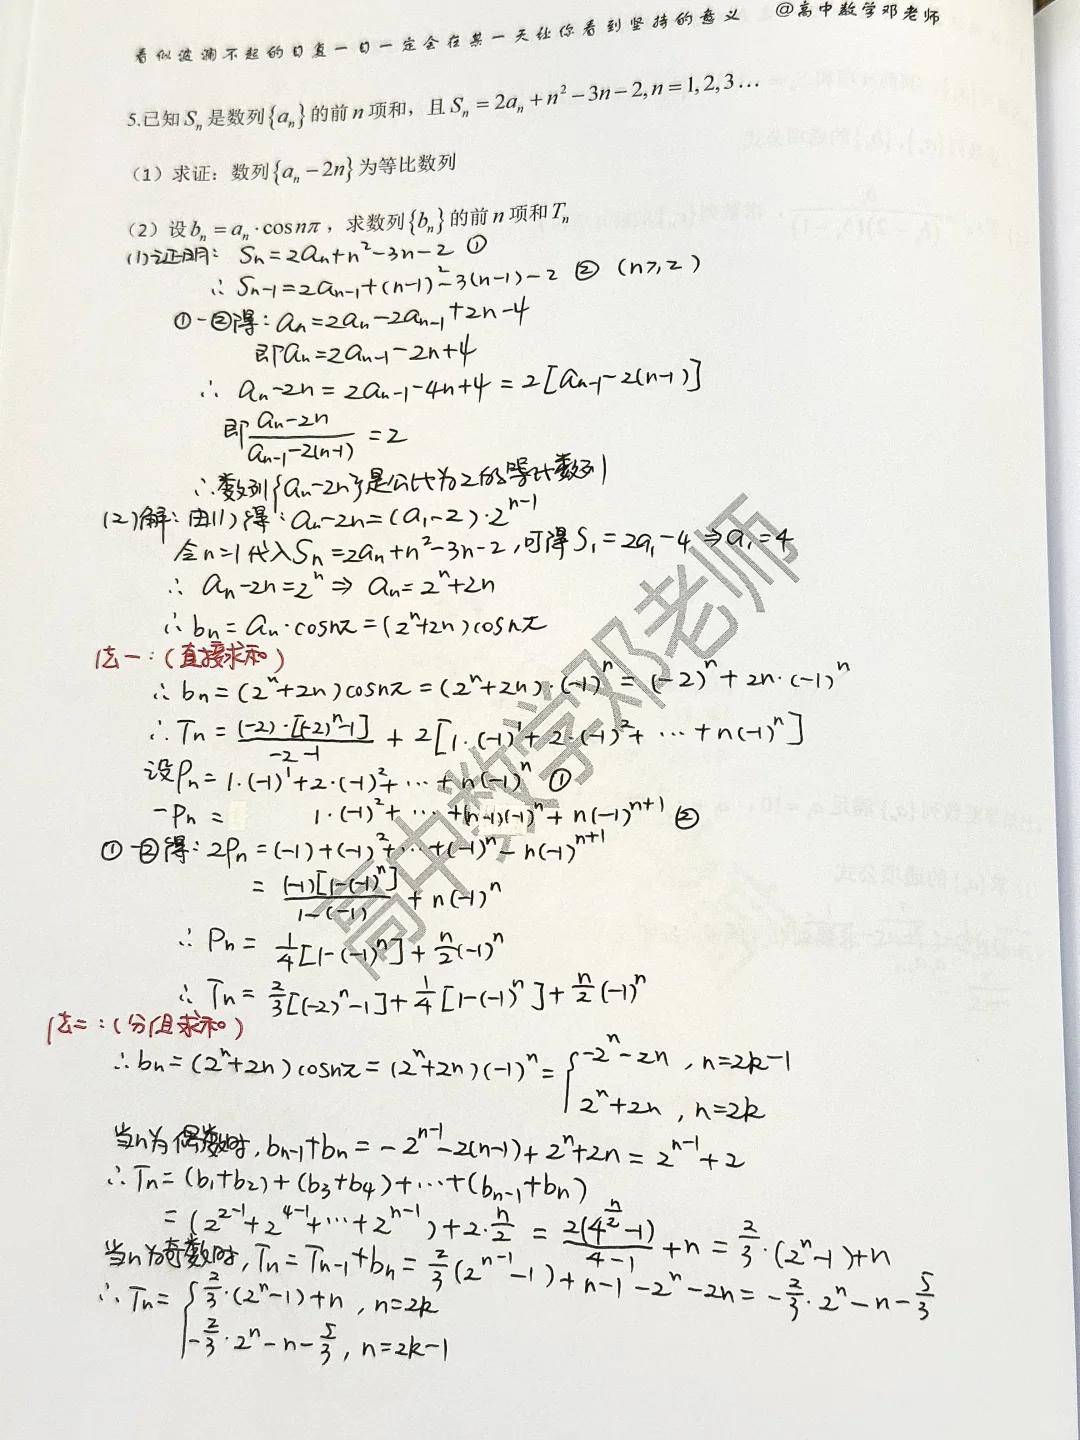 看似波澜不起的日复一日一定会在某一天让你看到坚持的意义 @高中数学邓老师
5.已知Sₙ是数列{aₙ}的前n项和，且Sₙ=2aₙ+n²−3n−2,n=1,2,3…
（1）求证：数列{aₙ−2n}为等比数列
（2）设bₙ=aₙ·cosnπ，求数列{bₙ}的前n项和Tₙ
(1)证明: Sₙ=2aₙ+n²−3n−2 ①
∴ Sₙ₋₁=2aₙ₋₁+(n−1)²−3(n−1)−2 ② (n≥2)
①−②得: aₙ=2aₙ−2aₙ₋₁+2n−4
即aₙ=2aₙ₋₁−2n+4
∴ aₙ−2n=2aₙ₋₁−4n+4=2[aₙ₋₁−2(n−1)]
即 (aₙ−2n)/(aₙ₋₁−2(n−1)) =2
∴数列{aₙ−2n}是公比为2的等比数列
(2)解: 由(1)得: aₙ−2n=(a₁−2)·2ⁿ⁻¹
令n=1代入Sₙ=2aₙ+n²−3n−2,可得S₁=2a₁−4⇒a₁=4
∴ aₙ−2n=2ⁿ⇒ aₙ=2ⁿ+2n
∴ bₙ=aₙ·cosnπ=(2ⁿ+2n)cosnπ
法一:(直接求和)
∴ bₙ=(2ⁿ+2n)cosnπ=(2ⁿ+2n)·(−1)ⁿ=(−2)ⁿ+2n·(−1)ⁿ
∴ Tₙ= (−2)·[(−2)ⁿ−1]/(−2−1) + 2[1·(−1)¹+2·(−1)²+ … +n(−1)ⁿ]
设Pₙ=1·(−1)¹+2·(−1)²+ … +n(−1)ⁿ ①
−Pₙ= 1·(−1)²+ … +(n−1)(−1)ⁿ+n(−1)ⁿ⁺¹ ②
①−②得: 2Pₙ=(−1)+(−1)²+…+(−1)ⁿ−n(−1)ⁿ⁺¹
= (−1)[1−(−1)ⁿ]/(1−(−1)) +n(−1)ⁿ
∴ Pₙ= 1/4[1−(−1)ⁿ]+n/2(−1)ⁿ
∴ Tₙ= 2/3[(−2)ⁿ−1]+1/4[1−(−1)ⁿ]+n/2(−1)ⁿ
法二:(分组求和)
∴bₙ=(2ⁿ+2n)cosnπ=(2ⁿ+2n)(−1)ⁿ={−2ⁿ−2n , n=2k−1
2ⁿ+2n , n=2k
当n为偶数时,bₙ₋₁+bₙ=−2ⁿ⁻¹−2(n−1)+2ⁿ+2n=2ⁿ⁻¹+2
∴Tₙ=(b₁+b₂)+(b₃+b₄)+…+(bₙ₋₁+bₙ)
=(2²⁻¹+2⁴⁻¹+…+2ⁿ⁻¹)+2·n/2 = 2(4^(n/2)−1)/(4−1) +n=2/3·(2ⁿ−1)+n
当n为奇数时,Tₙ=Tₙ₋₁+bₙ=2/3(2ⁿ⁻¹−1)+n−1−2ⁿ−2n=−2/3·2ⁿ−n−5/3
∴Tₙ={2/3·(2ⁿ−1)+n , n=2k
−2/3·2ⁿ−n−5/3, n=2k−1
高中数学邓老师